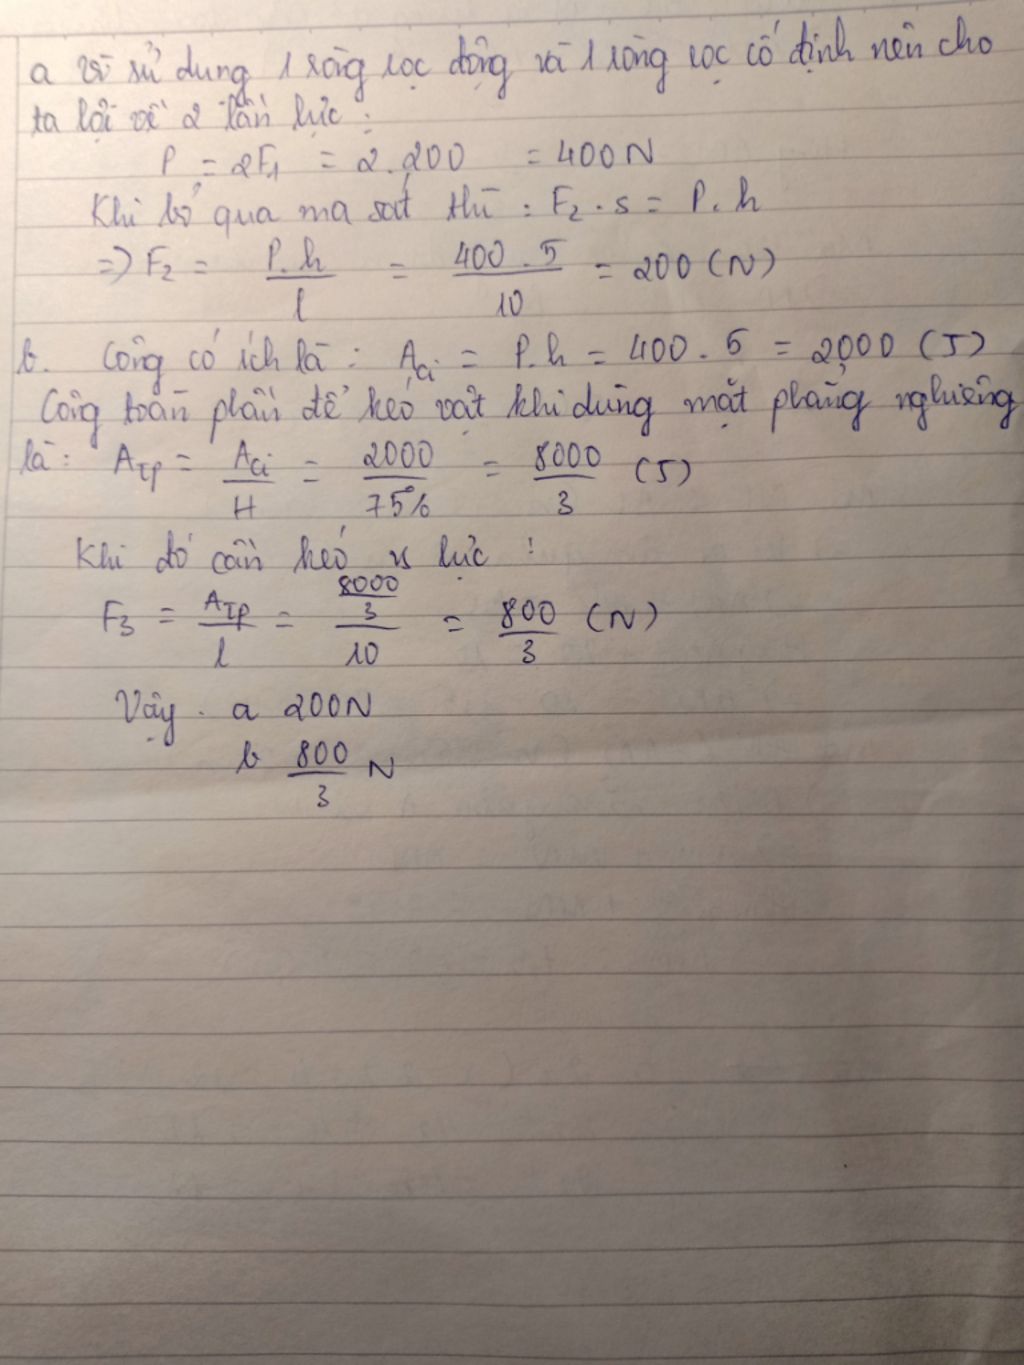 a vì sử dung 1 ròng rọc động và 1 ròng rọc cố định nên cho
ta lợi về 2 lần lực :
P = 2F1 = 2.200 = 400N
Khi bỏ qua ma sát thì : F2 . s = P. h
=> F2 = P.h/l = 400 . 5/10 = 200 (N)
b. Công có ích là : Aci = P.h = 400 . 5 = 2000 (J)
Công toàn phần để kéo vật khi dùng mặt phẳng nghiêng
là: ATP = Aci/H = 2000/75% = 8000/3 (J)
Khi đó cần kéo lực :
F3 = ATP/l = (8000/3)/10 = 800/3 (N)
Vậy . a 200N
b 800/3 N